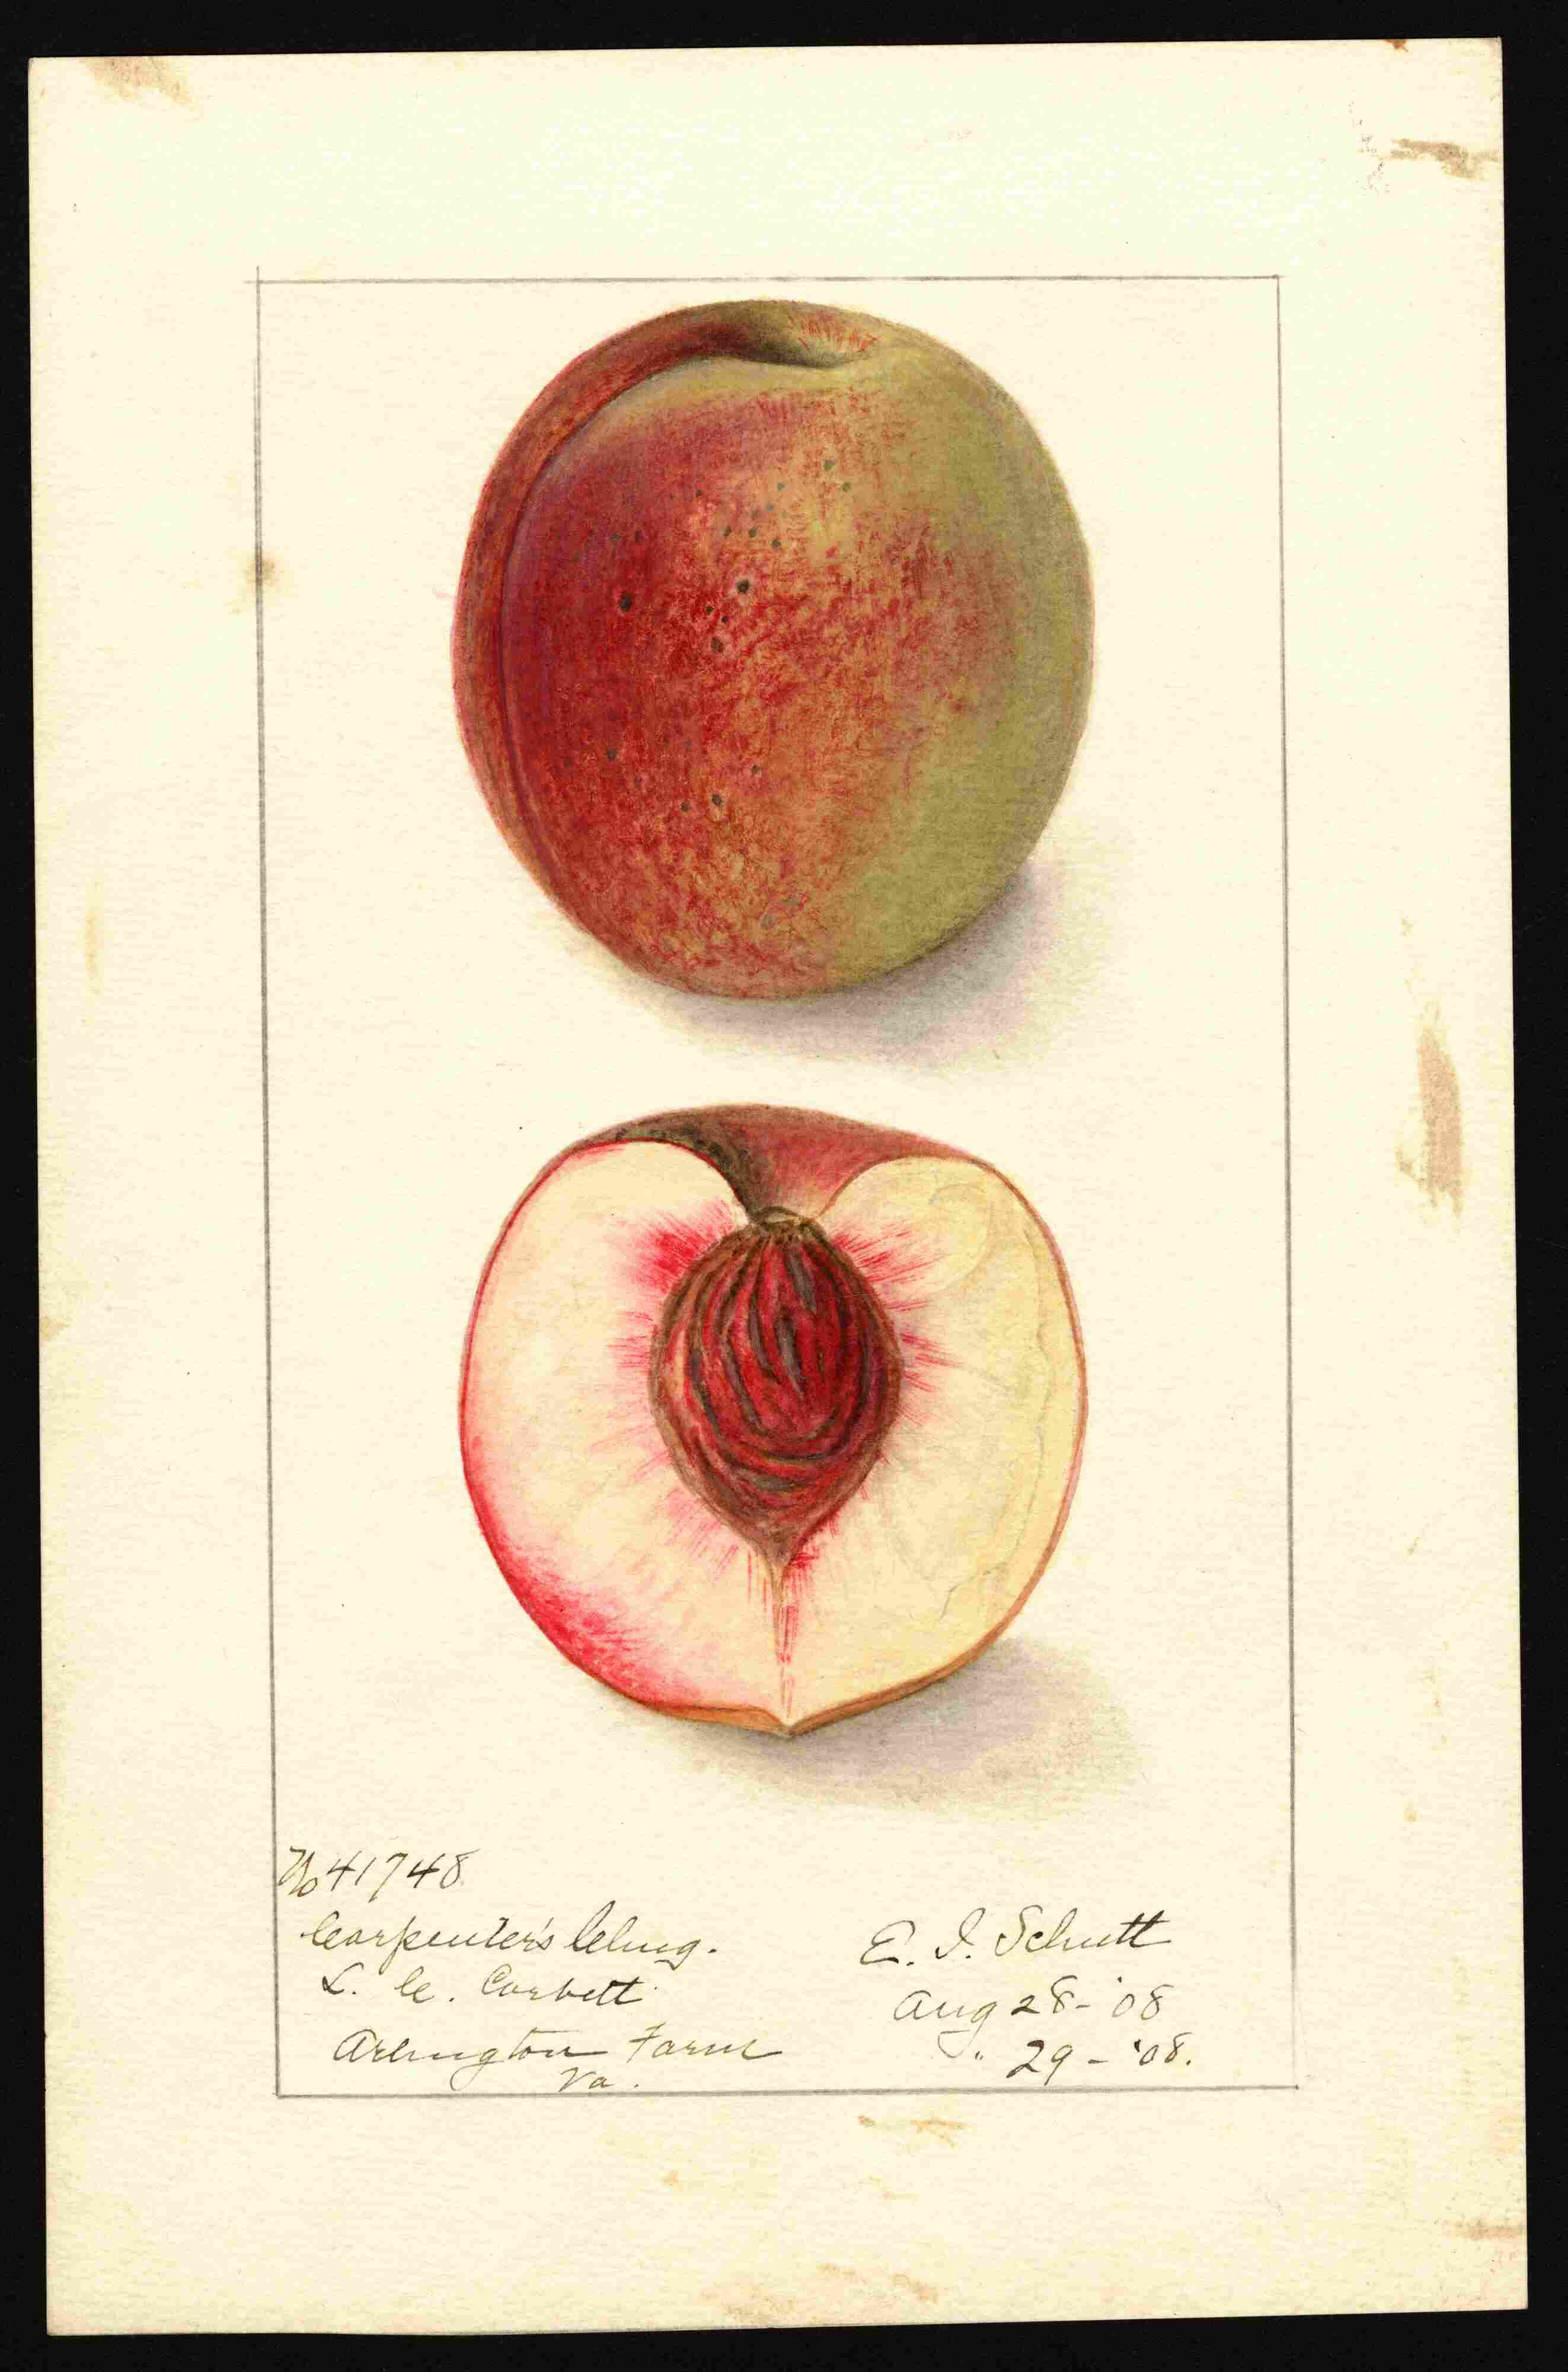 No 41748
Carpenter's Cling.
L. C. Corbett
Arlington Farm
Va.
E. I. Schutt
Aug 28-'08
" 29-'08.